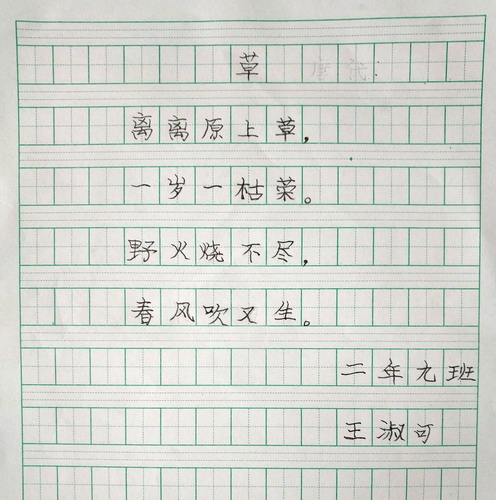 草
离离原上草，
一岁一枯荣。
野火烧不尽，
春风吹又生。
二年九班
王淑可